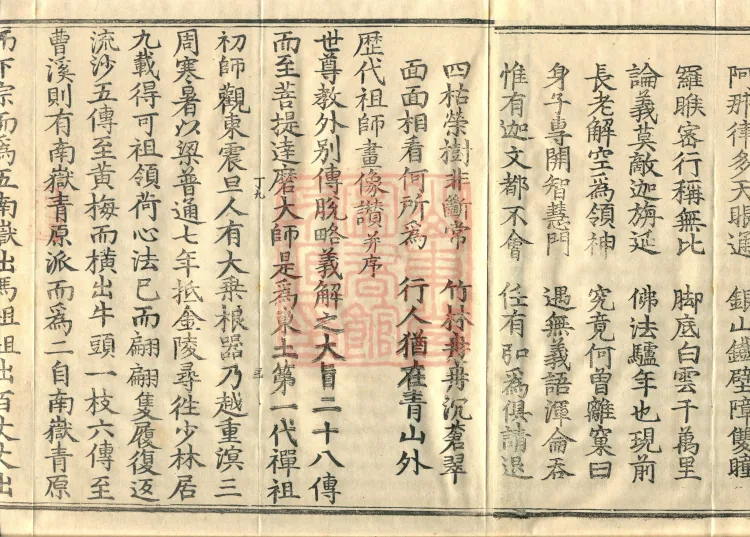 阿那律多天眼通　銀山鐵壁障雙瞳
羅睺密行稱無比　脚底白雲千萬里
論義莫敵迦旃延　佛法驢年也現前
長老解空為領神　究竟何曾離窠臼
身子專開智慧門　遇無義語渾侖吞
惟有迦文都不會　任有印為俱請退
四枯榮樹非斷常　竹林冉冉沉蒼翠
面面相看何所為　行人猶在青山外
歷代祖師畫像讚并序
世尊教外別傳脫略義解之大旨二十八傳
而至菩提達磨大師是為東土第一代禪祖
初師觀東震旦人有大乗根器乃越重溟三
周寒暑以梁普通七年抵金陵尋徃少林居
九載得可祖領荷心法已而翩翩隻履復返
流沙五傳至黃梅而橫出牛頭一枝六傳至
曹溪則有南嶽青原派而為二自南嶽青原
而下宗而為五南嶽出馬祖祖出百丈丈出